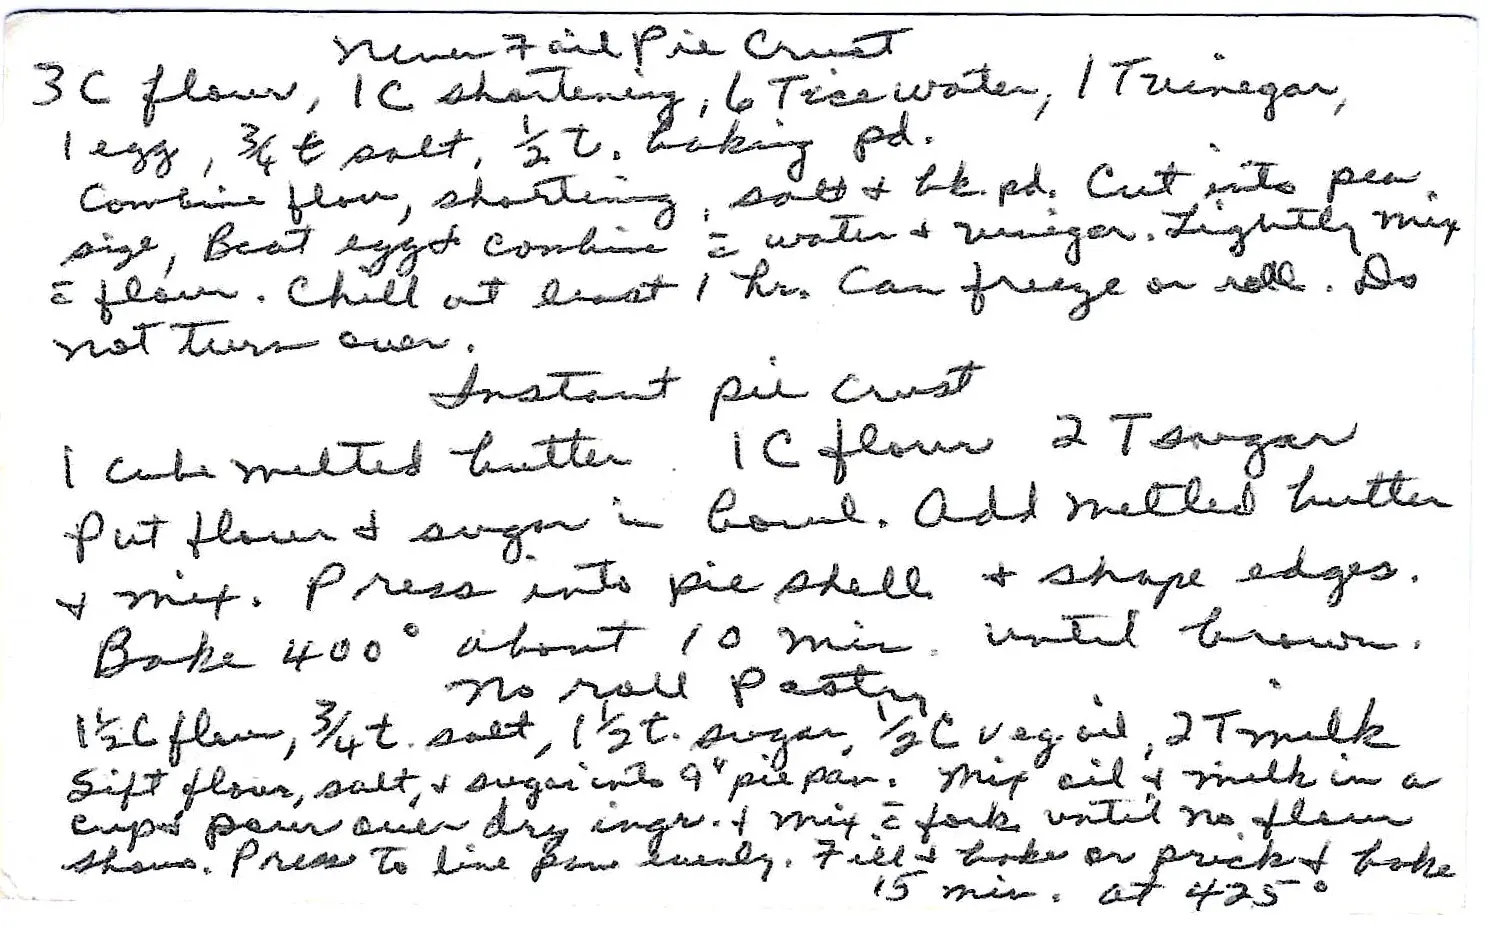 Never Fail Pie Crust
3 C flour, 1 C shortening, 6 T ice water, 1 T vinegar,
1 egg, ¾ t salt, ½ t. baking pd.
Combine flour, shortening, salt & bk. pd. Cut into pea
size, Beat egg & combine c̄ water & vinegar. Lightly mix
c̄ flour. Chill at least 1 hr. Can freeze or roll. Do
not turn over.
Instant pie crust
1 cube melted butter 1 C flour 2 T sugar
Put flour & sugar in bowl. Add melted butter
& mix. Press into pie shell & shape edges.
Bake 400° about 10 min. until brown.
No roll Pastry
1½ C flour, ¾ t. salt, 1½ t. sugar, ½ C veg. oil, 2 T milk
Sift flour, salt, & sugar into 9" pie pan. Mix oil & milk in a
cup & pour over dry ingr. & mix c̄ fork until no flour
shows. Press to line pan evenly. Fill & bake or prick & bake
15 min. at 425°